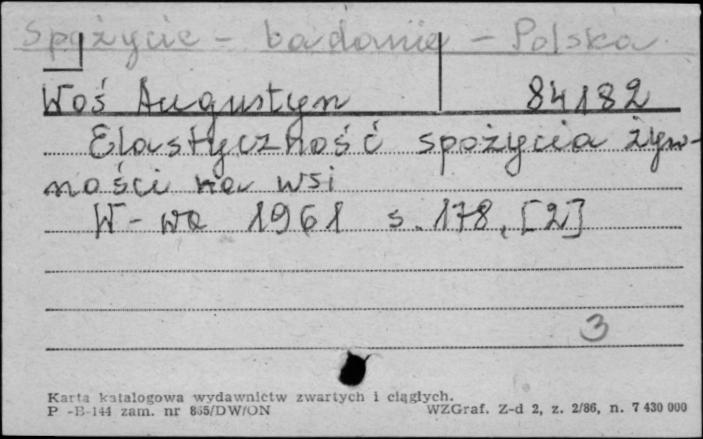 Spożycie - badanie - Polska
Woś Augustyn 84182
Elastyczność spożycia żyw-
ności na wsi
W-wa 1961 s. 178, [2]
3
Karta katalogowa wydawnictw zwartych i ciągłych.
P -B-144 zam. nr 865/DW/ON WZGraf. Z-d 2, z. 2/86, n. 7 430 000